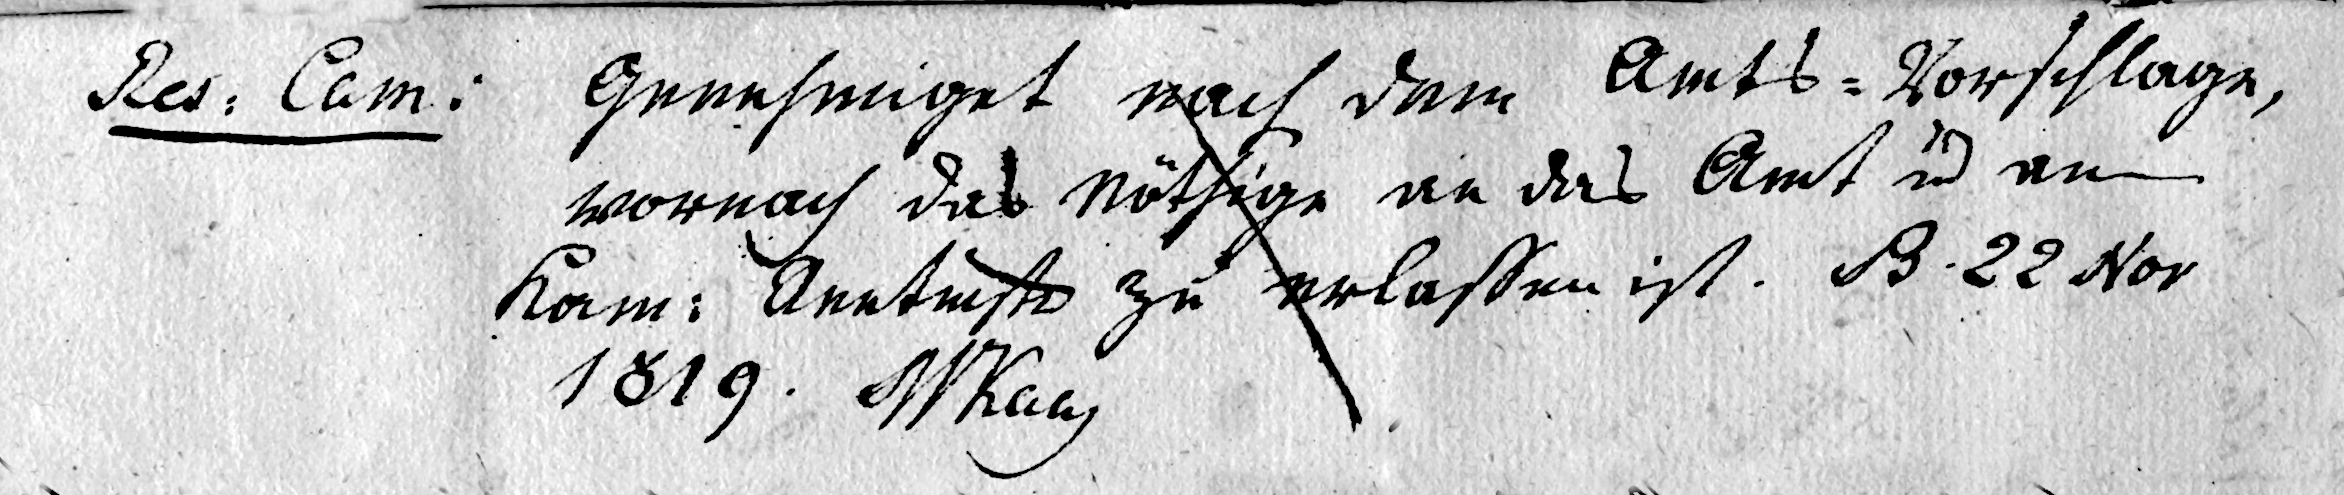 Res: Cam: Genehmiget nach dem Amts-Vorschlage,
wornach das Nöthige an das Amt ud an
Kam: zu erlassen ist. B. 22 Nov
1819.